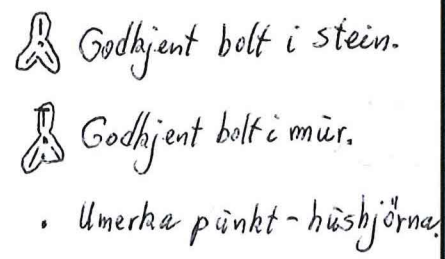 Godkjent bolt i stein.
Godkjent bolt i mur.
Umerka punkt - hushjörna.